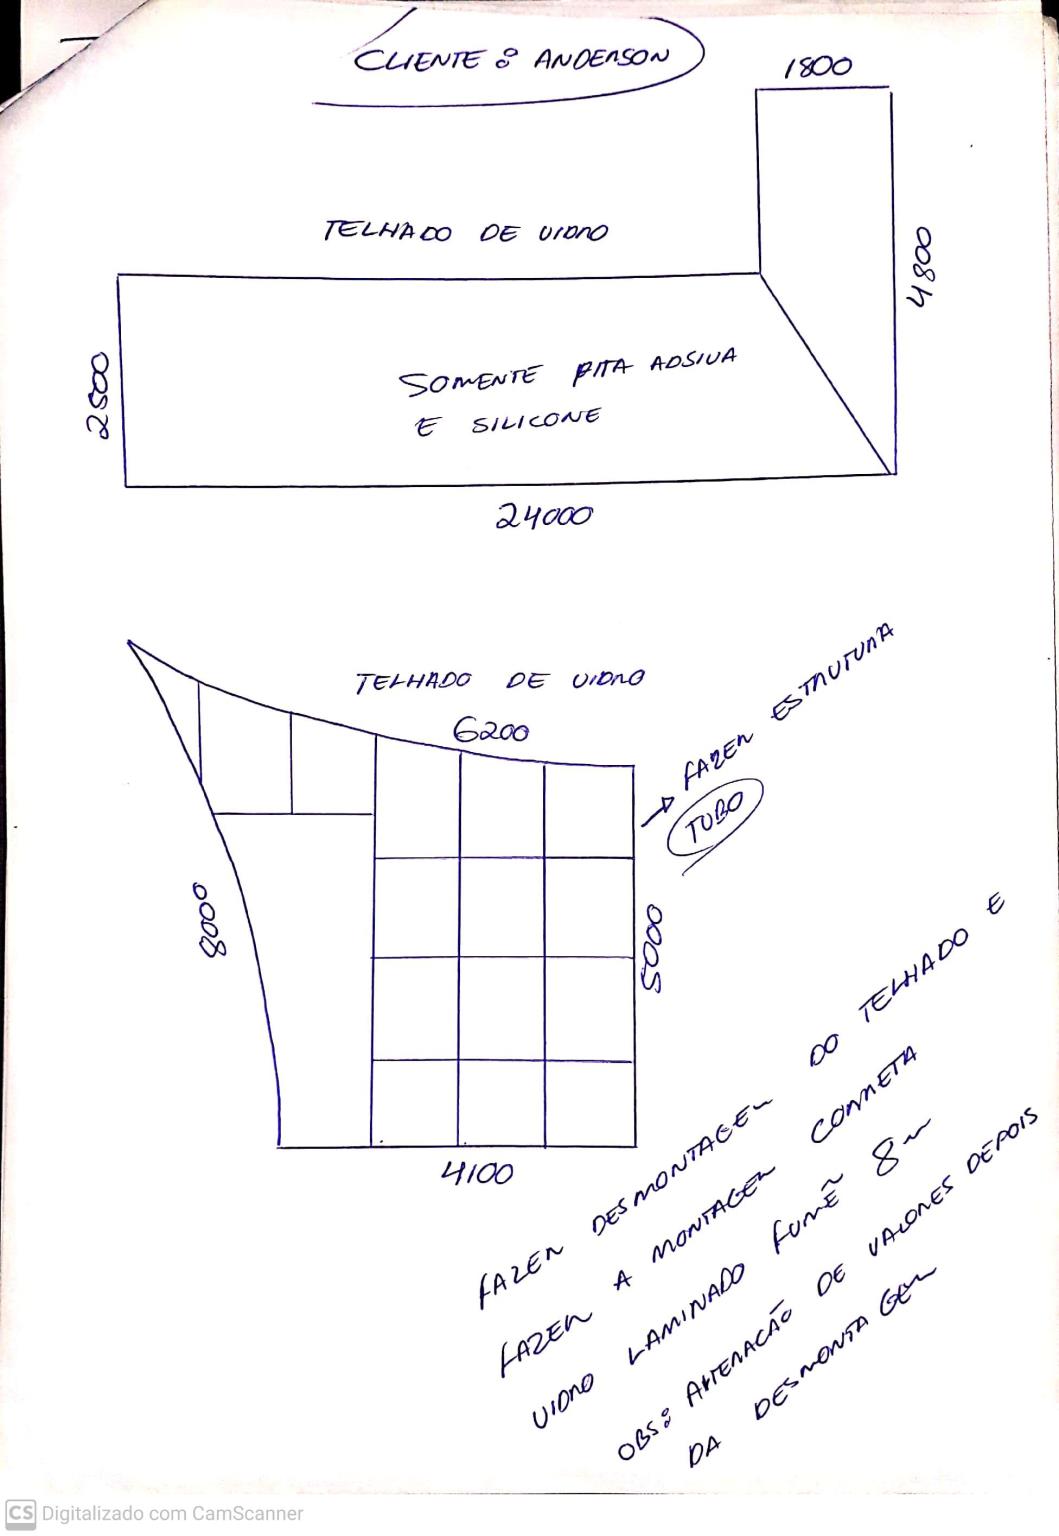 CLIENTE : ANDERSON
1800
TELHADO DE VIDRO
4800
2500
SOMENTE FITA ADSIVA
E SILICONE
24000
TELHADO DE VIDRO
6200
→ FAZER ESTRUTURA
TUBO
8000
5000
4100
FAZER DESMONTAGEM DO TELHADO E
FAZER A MONTAGEM CORRETA
VIDRO LAMINADO FUMÊ 8m
OBS: ALTERAÇÃO DE VALORES DEPOIS
DA DESMONTAGEM
CS Digitalizado com CamScanner